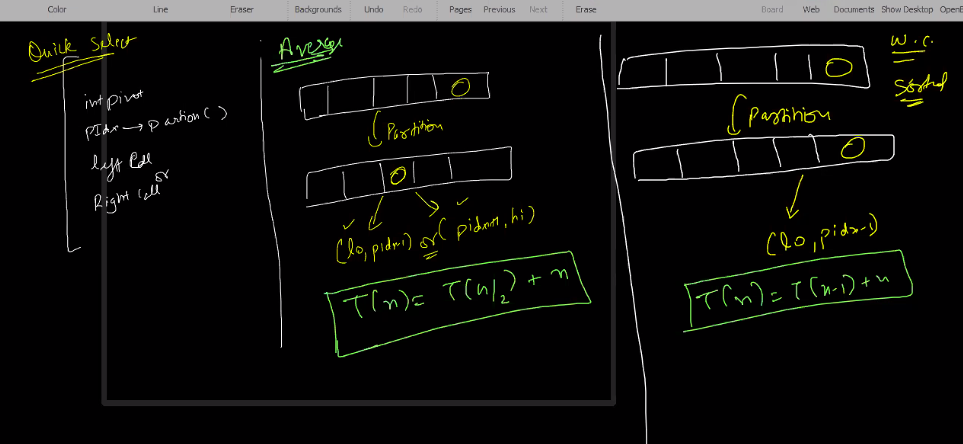 Color Line Eraser Backgrounds Undo Redo Pages Previous Next Erase Board Web Documents Show Desktop OpenB
Quick Select
int pivot
pIdx → partion()
left Call
or
Right Call
Average
Partition
(lo, pidx-1) or (pidx+1, hi)
T(n) = T(n/2) + n
W.C.
Sorted
Partition
(lo, pidx-1)
T(n) = T(n-1) + n